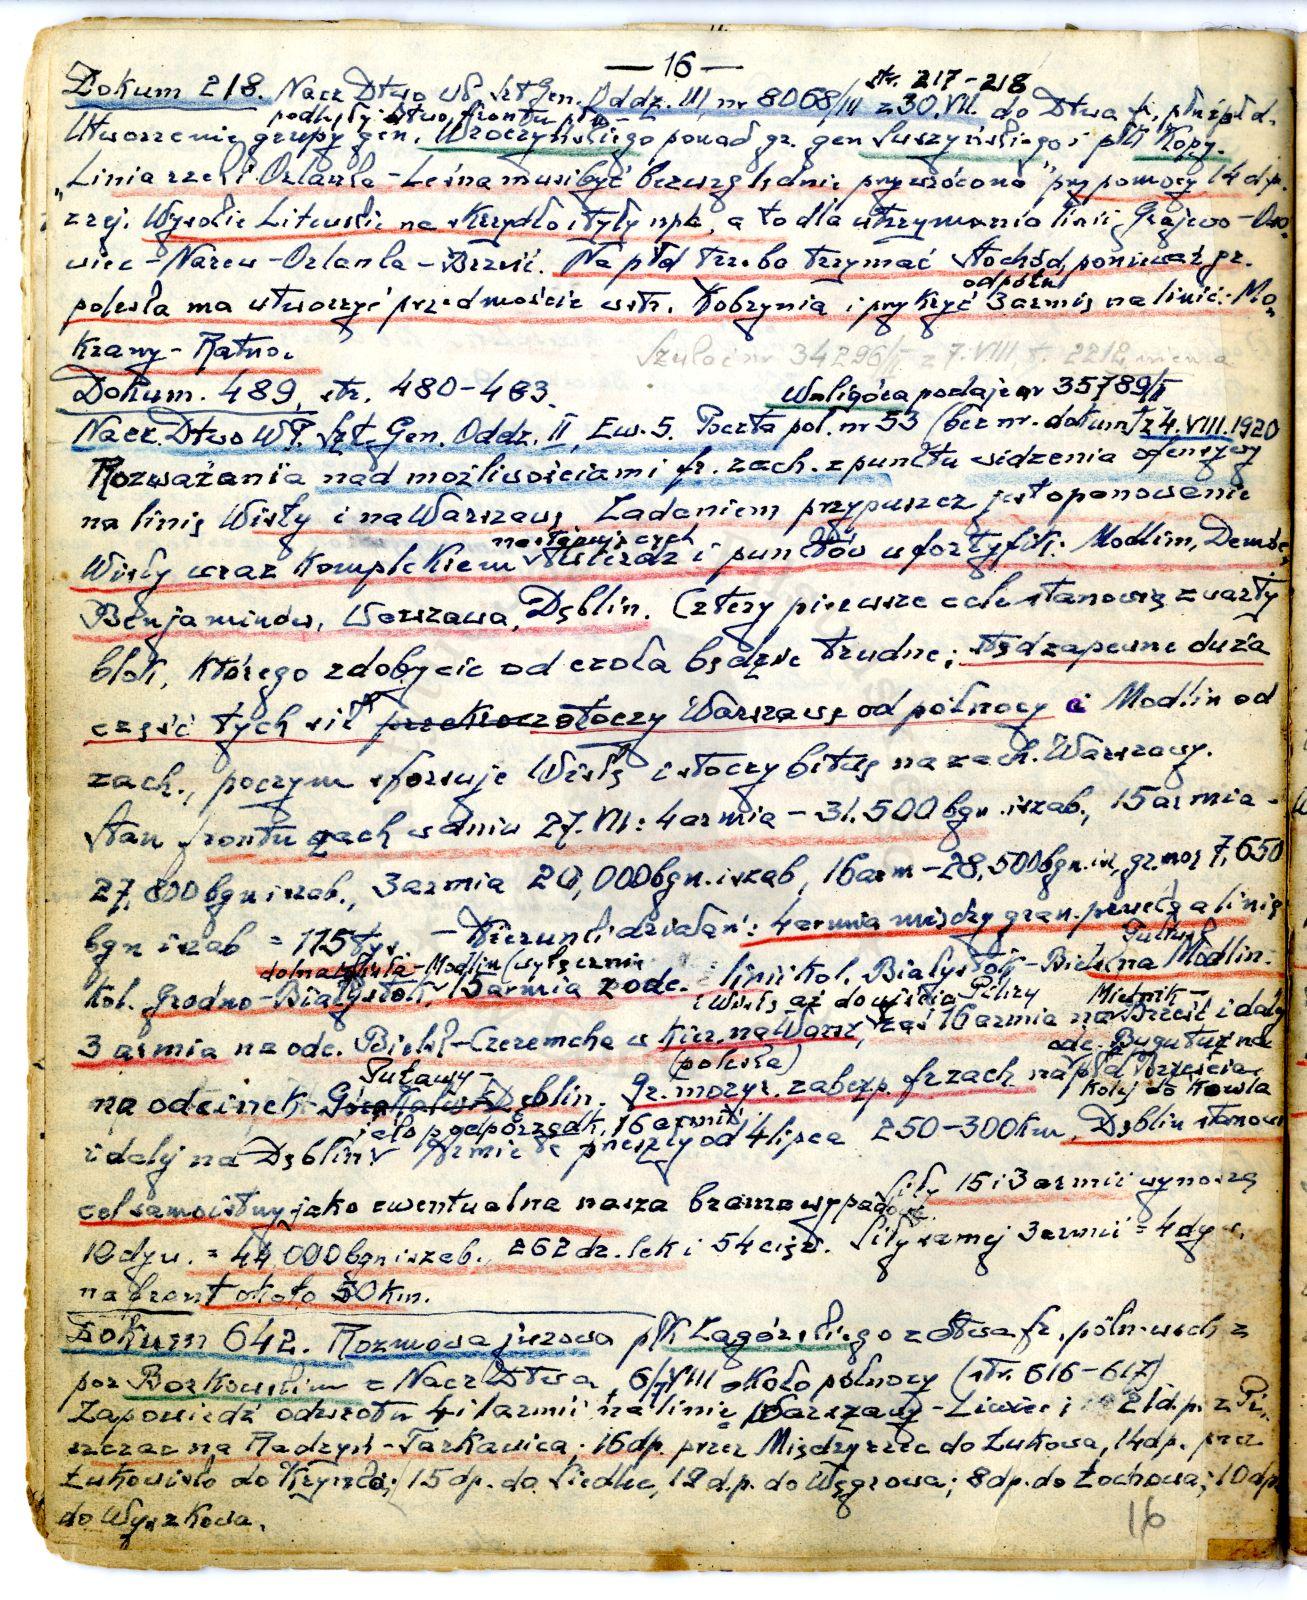 — 16 —
Dokum 218. Nacz Dtwo WP. Szt Gen. Oddz. III, nr 8068/III z 30.VII. do Dtwa fr. płn i płd.
str. 217-218
podległy dtwo frontu płn-
Utworzenie grupy gen. Wroczyńskiego ponad gr. gen Suszyńskiego i płk Kopy.
"Linia rzeki Orlanka - Leśna musi być bezwzględnie przywrócona" przy pomocy 14 dp.
z rej. Wysokie Litewskie na skrzydło i tyły npla, a to dla utrzymania linii, Grajewo - Oso-
wiec - Narew - Orlanka - Brześć. Na płd trzeba trzymać Stochód, ponieważ gr.
poleska ma utworzyć przedmoście wstr. Kobrynia i przykryć odpółn 3 armię na linii: Mo-
krany - Ratno.
34296/II z 7.VIII
Dokum. 489, str. 480-483. Waligóra podaje nr 35789/II
Nacz. Dtwo WP. Szt. Gen. Oddz. II, Ew. 5. Poczta pol. nr 53 (bez nr. dokum) z 4.VIII.1920
Rozważania nad możliwościami fr. zach. z punktu widzenia ofensywy
na linię Wisły i na Warszawę. Zadaniem przypuszcz jest opanowanie
Wisły wraz kompleksem następujących twierdz i punktów ufortyfik: Modlin, Dembe,
Benjaminów, Warszawa, Dęblin. Cztery pierwsze cele stanowią zwarty
blok, którego zdobycie od czoła będzie trudne; stąd zapewne duża
część tych sił otoczy Warszawę od północy i Modlin od
zach., poczym sforsuje Wisłę i stoczy bitwę na zach. Warszawy.
Stan frontu zach w dniu 27.VII: 4 armia - 31.500 bgn. i szab., 15 armia -
27,800 bgn i szab., 3 armia 20,000 bgn. i szab, 16 arm - 28,500 bgn. i sz, gr. moz 7,650
bgn i szab = 115 tys. - Kierunki działań: 4 armia między gran. prus. a linią
dolna Wisła - Modlin (wyłącznie
kol. Grodno - Białystok, 15 armia z odc. linii kol. Białystok - Bielsk na Modlin.
Pułtusk
i Wisłę aż do ujścia Pilicy
Mielnik -
3 armia na odc. Bielsk - Czeremcha w kier. na Warsz, zaś 16 armia na Brześć i dalej
odc. Bugu tuż na
Puławy -
(poleska)
na odcinek Dęblin. Gr. mozyr. zabezp. fr zach na płd Brześcia
kolej do Kowla
i dalej na Dęblin jako podporządk. 16 armii. Armie te przeszły od 4 lipca 250-300 km. Dęblin stanowi
cel samoistny jako ewentualna nasza brama wypadowa. Siły 15 i 3 armii wynoszą
10 dyw. = 44,000 bgn i szab., 262 dz. lek i 54 cięż. Siły samej 3 armii = 4 dyw.
na front około 50 km.
Dokum 642. Rozmowa juzowa płk Zagórskiego z dtwa fr. półn-wsch z
por Borkowskim z Nacz Dtwa, 6/7 VIII około północy (str. 616-617)
Zapowiedź odwrotu 4 i 1 armii na linię Warszawy - Liwiec i 21 dp. z Pi-
szczac na Radzyń - Tarkawica. 16 dp. przez Międzyrzec do Łukowa, 14 dp. przez
Łukowisko do Krzeska; 15 dp. do Siedlec, 12 d.p. do Węgrowa; 8 dp. do Łochowa; 10 dp
do Wyszkowa.
16